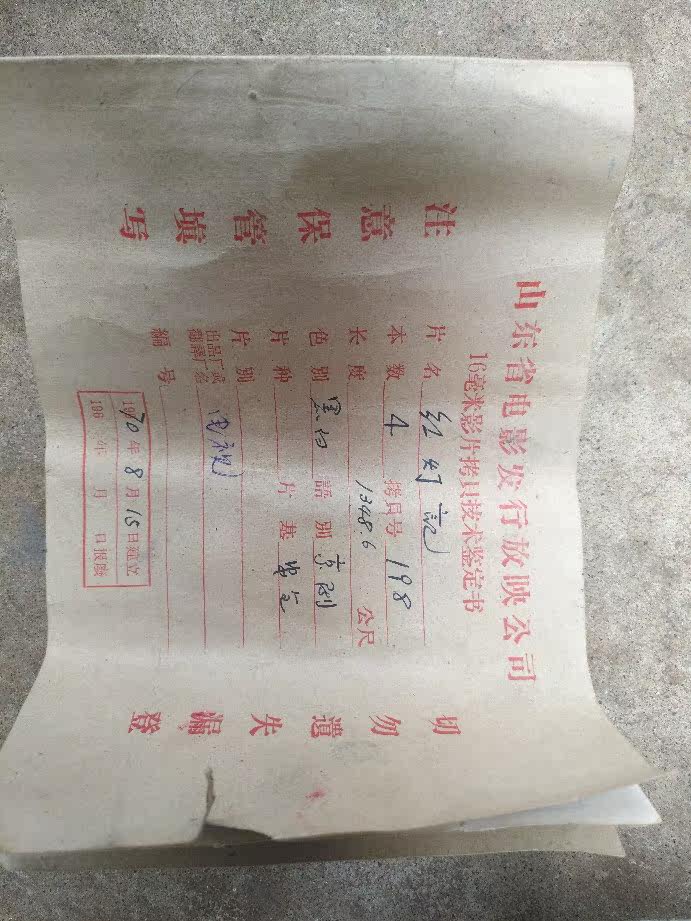 山东省电影发行放映公司
16毫米影片拷貝技术鉴定书
注意保管填写
片名 红灯記
本数 4 拷貝号 198
长度 1348.6 公尺
色别 黑白 語别 京剧
片种 片基 安全
片别
出品厂或翻譯厂名 电视
編号
1970年8月15日建立
196 年 月 日报廢
切勿遺失漏登